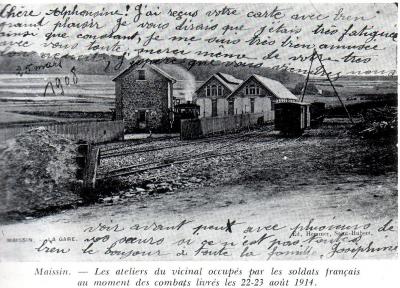 Chère Alphonsine! J'ai reçu votre carte avec bien
grand plaisir. Je vous disais que j'étais très fatiguée
ainsi que constant, je me suis très bien amusée
avec vous tante, encore même de votre très
nous
25 mars 1908
MAISSIN. LA GARE.
Ed. Hommer, Saint-Hubert.
voir avant peu avec plusieurs de
vos sœurs si ce n'est pas toutes
bien le bonjour à toute la famille, Joséphine
Maissin. — Les ateliers du vicinal occupés par les soldats français
au moment des combats livrés les 22-23 août 1914.